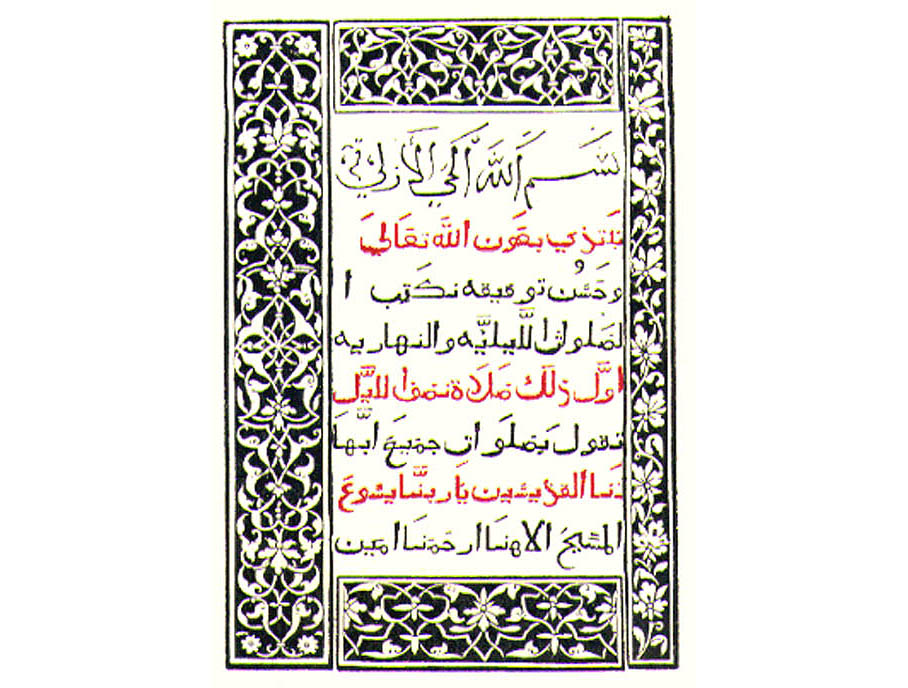 بسم الله الحي الازلي
نبتدي بعون الله تعالي
وحسن توفيقه نكتب ا
لصلوات الليليه والنهاريه
اول ذلك صلاة نصف الليل
تقول بصلوات جميع ابها
تنا القديسين يا ربنا يشوع
المسيح الاهنا ارحمنا امين